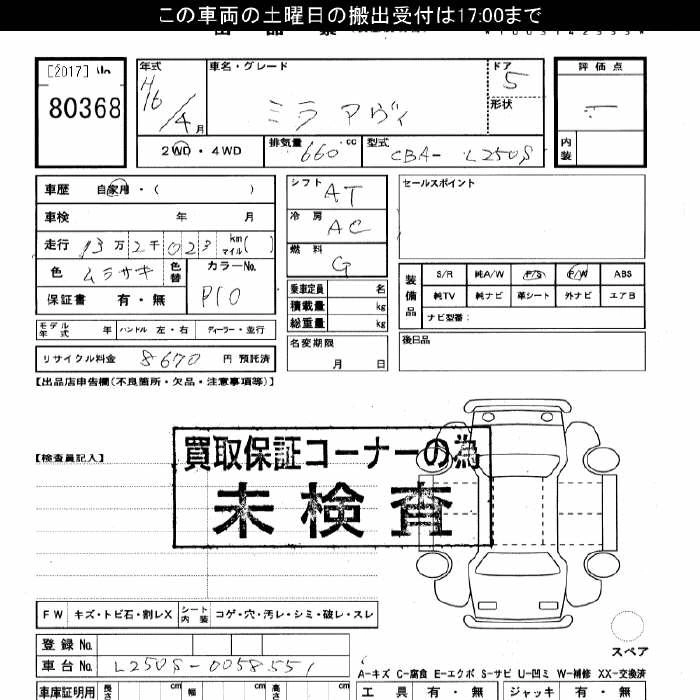 この車両の土曜日の搬出受付は17:00まで
[2017]
80368
年式
H16/4月
車名・グレード
ミラ アヴィ
ドア
5
形状
評価点
内装
2WD・4WD
排気量
660 cc
型式
CBA- L250S
車歴 自家用・( )
車検 年 月
走行 13万2千023 km マイル( )
色 ムラサキ 色替 カラーNo. P10
保証書 有・無
シフト AT
冷房 AC
燃料 G
乗車定員 名
積載量 kg
総重量 kg
名変期限
月 日
セールスポイント
装備品
S/R 純A/W P/S P/W ABS
純TV 純ナビ 革シート 外ナビ エアB
ナビ型番:
後日品
モデル年式 年 ハンドル 左・右 ディーラー・並行
リサイクル料金 8670 円 預託済
【出品店申告欄(不良箇所・欠品・注意事項等)】
【検査員記入】
買取保証コーナーの為
未検査
FW キズ・トビ石・割レX シート内装 コゲ・穴・汚レ・シミ・破レ・スレ
スペア
登録No.
車台No. L250S-0058551
A-キズ C-腐食 E-エクボ S-サビ U-凹ミ W-補修 XX-交換済
車庫証明用 長さ cm 幅 cm 高さ cm
工具 有・無 ジャッキ 有・無